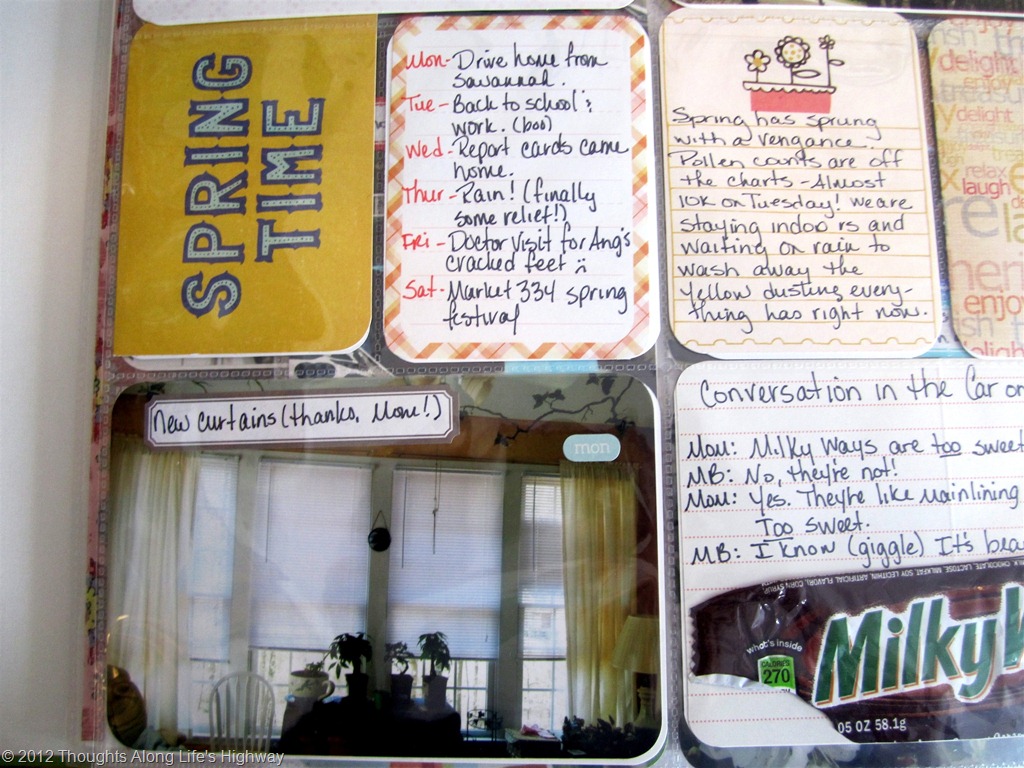 SPRING
TIME
Mon- Drive home from
Savannah.
Tue - Back to school &
work. (boo)
Wed - Report cards came
home.
Thur - Rain! (finally
some relief!)
Fri - Doctor Visit for Ang's
cracked feet
Sat - Market 334 spring
festival
Spring has sprung
with a vengance.
Pollen counts are off
the charts - Almost
10K on Tuesday! We are
staying indoors and
waiting on rain to
wash away the
yellow dusting every-
thing has right now.
delight
delight
relax
laugh
enjoy
New curtains (thanks, Mom!)
mon
Conversation in the Car on
Mom: Milky Ways are too sweet
MB: No, they're not!
Mom: Yes. They're like mainlining
Too sweet.
MB: I know (giggle) It's
what's inside
CALORIES
270
Milky
05 OZ 58.1g
© 2012 Thoughts Along Life's Highway